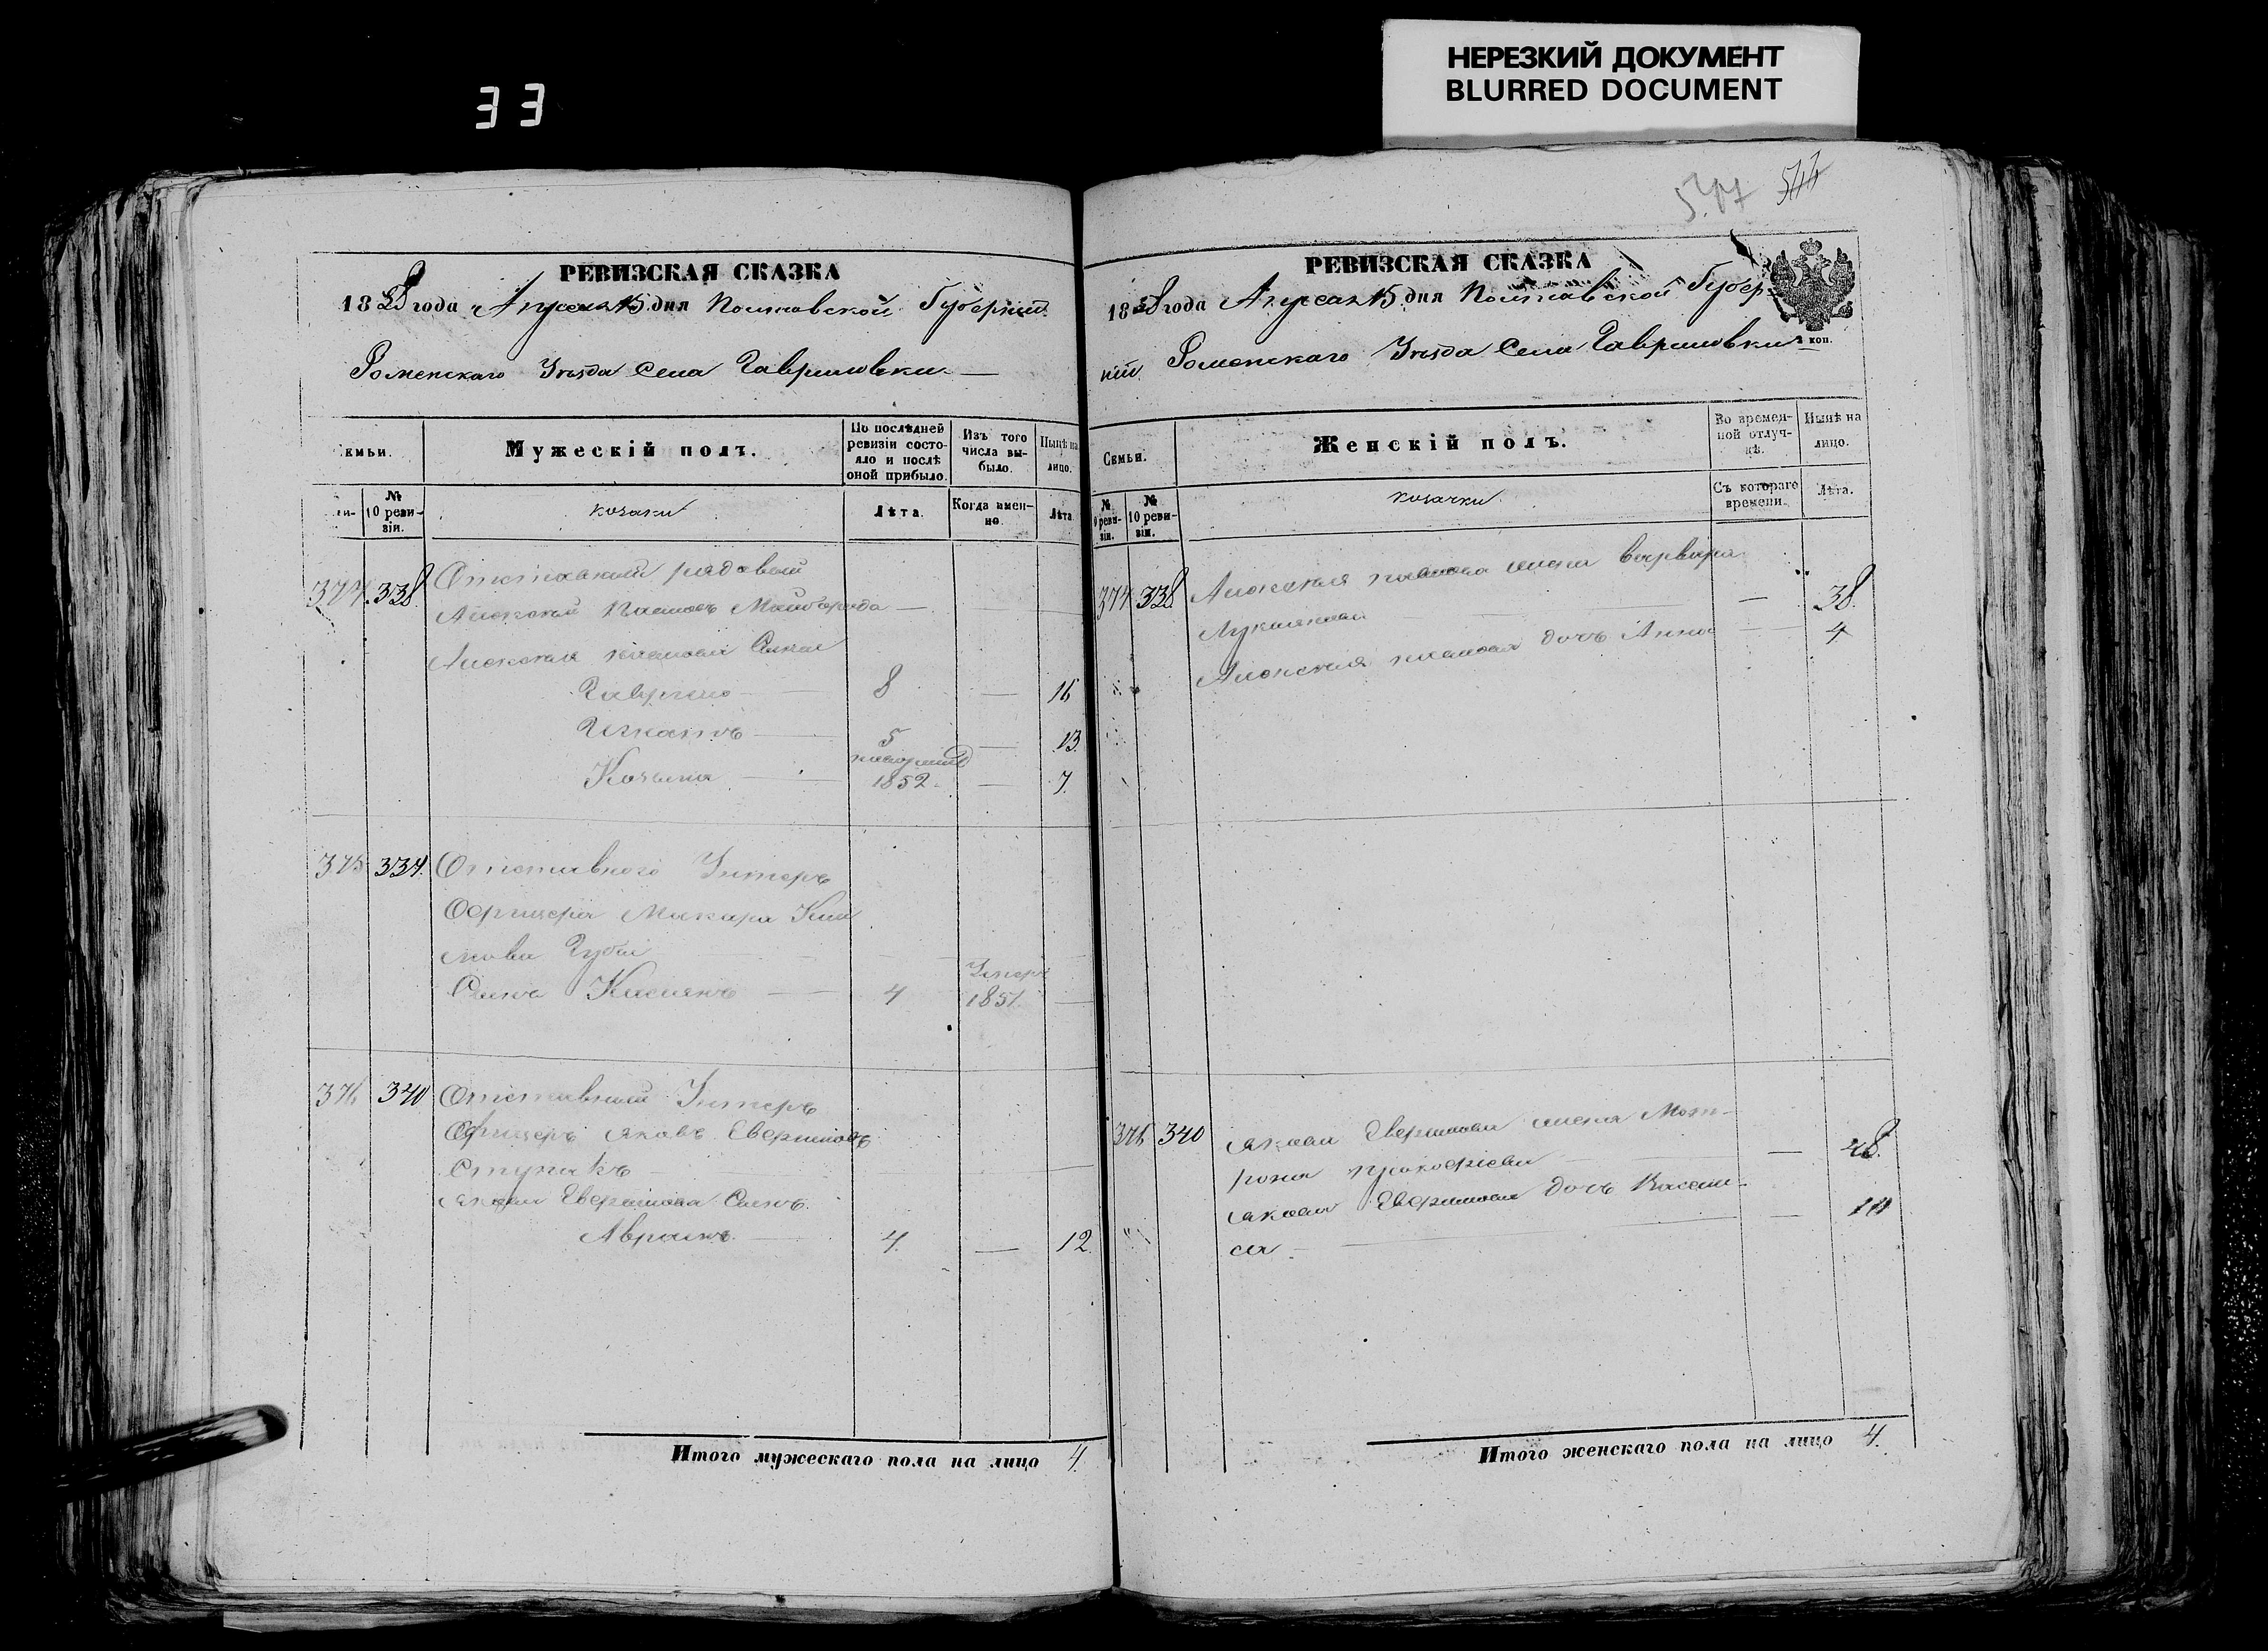 НЕРЕЗКИЙ ДОКУМЕНТ
BLURRED DOCUMENT
33
РЕВИЗСКАЯ СКАЗКА
1858 года Апреля 15 дня Полтавской Губерніи
Роменскаго Уезда Села Гавриловки
емьи.
Мужескій полъ.
По послѣдней ревизіи состояло и послѣ оной прибыло.
Изъ того числа выбыло.
Нынѣ на лицо.
№ 10 ревизіи.
козаки
Лѣта.
Когда именно.
Лѣта
374. 338. Отставной рядовой
Алексей Павловъ Майборода
Алексея Павлова Сыны
Гаврило 8 — 16
Игнатъ 5 — 13.
Козьма 1852. — 7.
375 339. Отставного Унтеръ
Офицера Макара Кли
мова Губы
Сынъ Касиянъ 4 Умеръ 1851. —
376 340 Отставной Унтеръ
Офицеръ Яковъ
Ступакъ
Якова Сынъ.
Абрамъ 4. — 12.
Итого мужескаго пола на лицо 4.
577 544
РЕВИЗСКАЯ СКАЗКА
1858 года Апреля 15 дня Полтавской Губер-
ніи Роменскаго Уезда Села Гавриловки
2 коп.
Семьи.
Женскій полъ.
Во временной отлучкѣ.
Нынѣ на лицо.
№ 9 ревизіи.
№ 10 ревизіи.
козачки
Съ котораго времени.
Лѣта.
374 338. Алексея Павлова жена Варвара
Лукьянова — 38.
Алексея Павлова дочь Анна — 4
376 340 Якова жена Мот-
рона Прокофіева — 48.
Якова дочь Васили-
са — 10
Итого женскаго пола на лицо 4.